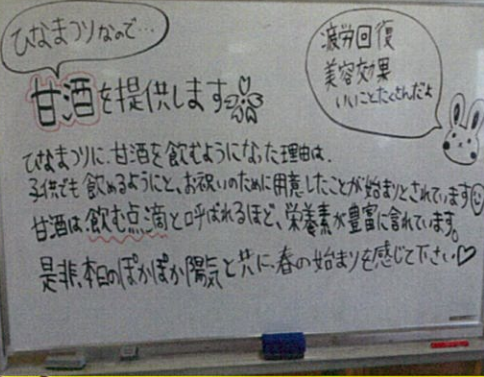 ひなまつりなので…
甘酒を提供します
疲労回復
美容効果
いいことたくさんだよ
ひなまつりに、甘酒を飲むようになった理由は、
子供でも飲めるようにと、お祝いのために用意したことが始まりとされています
甘酒は飲む点滴と呼ばれるほど、栄養素が豊富に含れています。
是非、本日のぽかぽか陽気と共に、春の始まりを感じて下さい♡